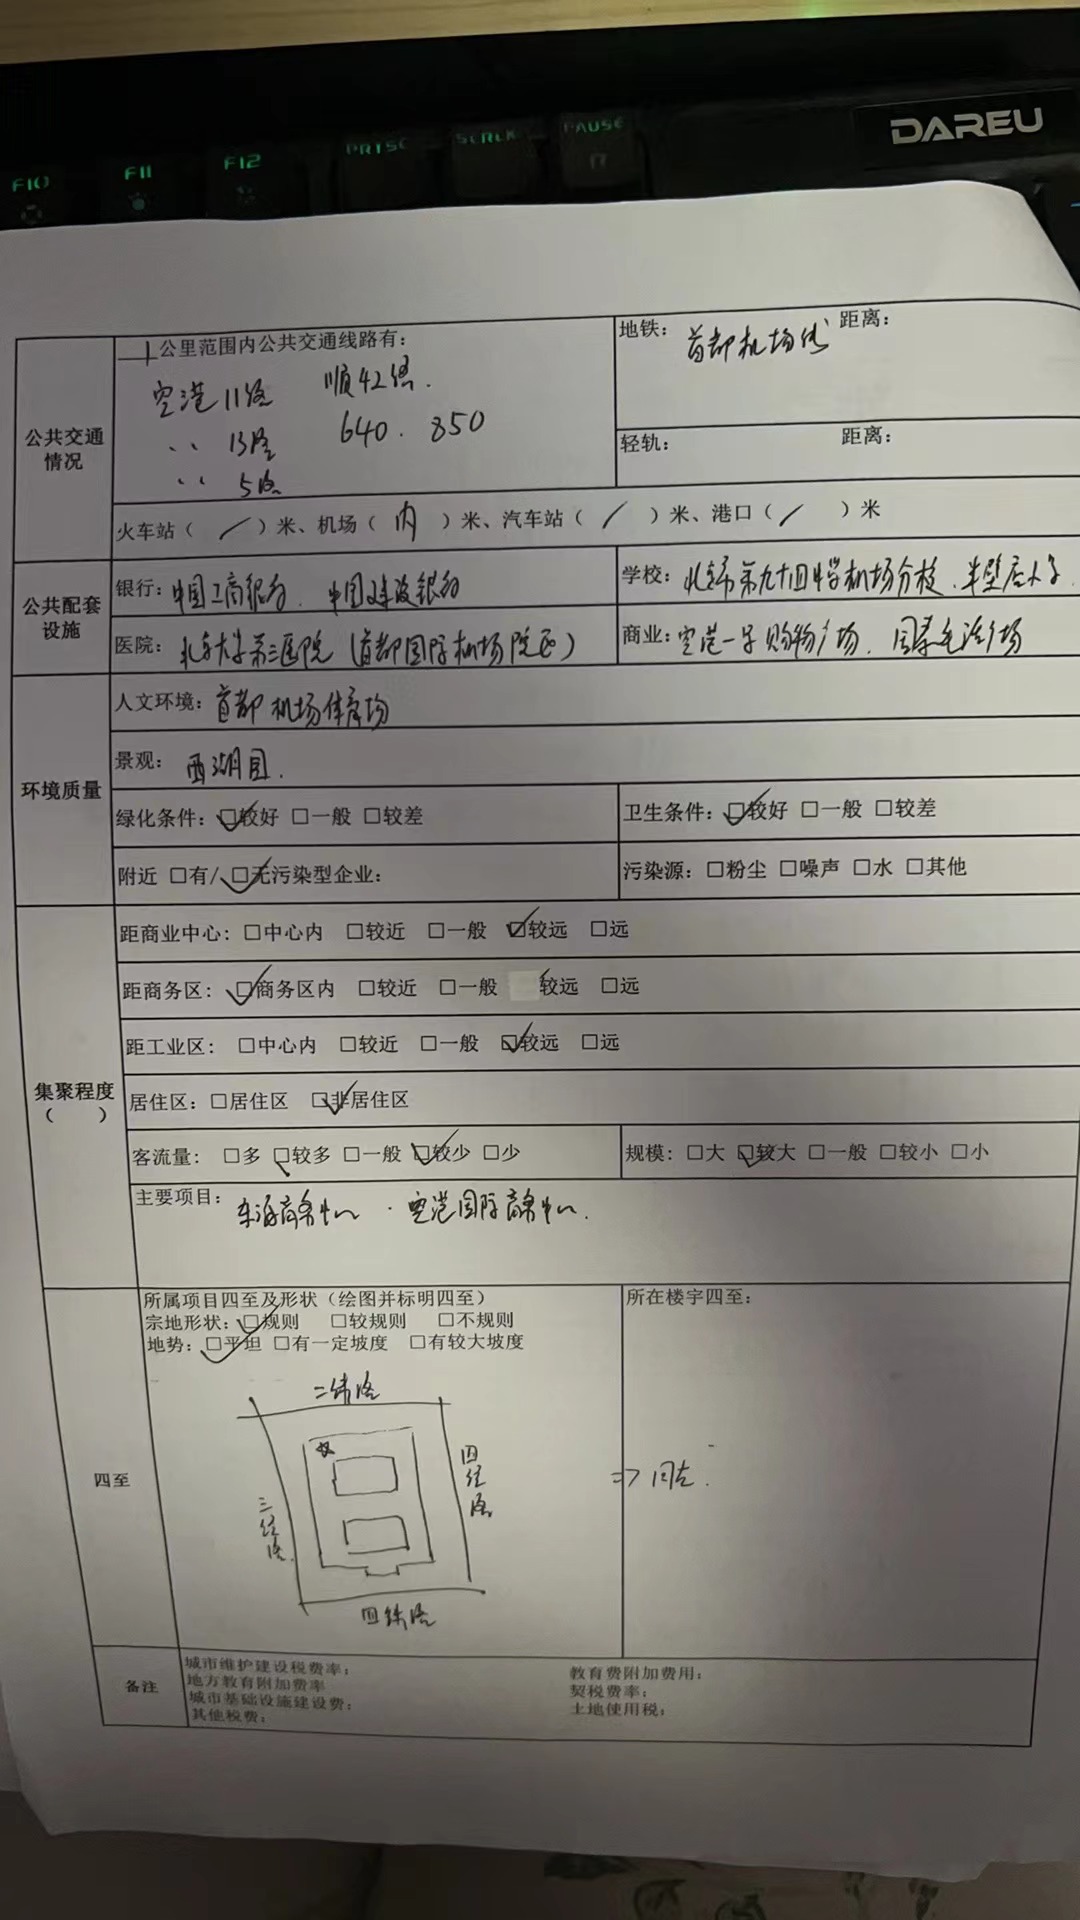 DAREU
F10 F11 F12 PRTSC SCRLK PAUSE
公共交通情况
一公里范围内公共交通线路有：
空港11路 顺42路.
〃 13路 640. 850
〃 5路
地铁： 首都机场线 距离：
轻轨： 距离：
火车站（ / ）米、机场（ 内 ）米、汽车站（ / ）米、港口（ / ）米
公共配套设施
银行：中国工商银行. 中国建设银行
学校：北京市第九十四中学机场分校.半壁店小学
医院：北京大学第三医院（首都国际机场院区）
商业：空港一号购物广场.
人文环境：首都机场体育场
环境质量
景观： 西湖园.
绿化条件：☑较好 □一般 □较差
卫生条件：☑较好 □一般 □较差
附近 □有/☑无污染型企业：
污染源：□粉尘 □噪声 □水 □其他
集聚程度（ ）
距商业中心：□中心内 □较近 □一般 ☑较远 □远
距商务区：☑商务区内 □较近 □一般 较远 □远
距工业区：□中心内 □较近 □一般 ☑较远 □远
居住区：□居住区 ☑非居住区
客流量：□多 ☑较多 □一般 ☑较少 □少
规模：□大 ☑较大 □一般 □较小 □小
主要项目： 商务中心 . 空港国际商务中心.
四至
所属项目四至及形状（绘图并标明四至）
宗地形状：☑规则 □较规则 □不规则
地势：☑平坦 □有一定坡度 □有较大坡度
二纬路
三经路.
四经路
四纬路
所在楼宇四至：
=> 同左.
备注
城市维护建设税费率： 教育费附加费用：
地方教育附加费率 契税费率：
城市基础设施建设费： 土地使用税：
其他税费：